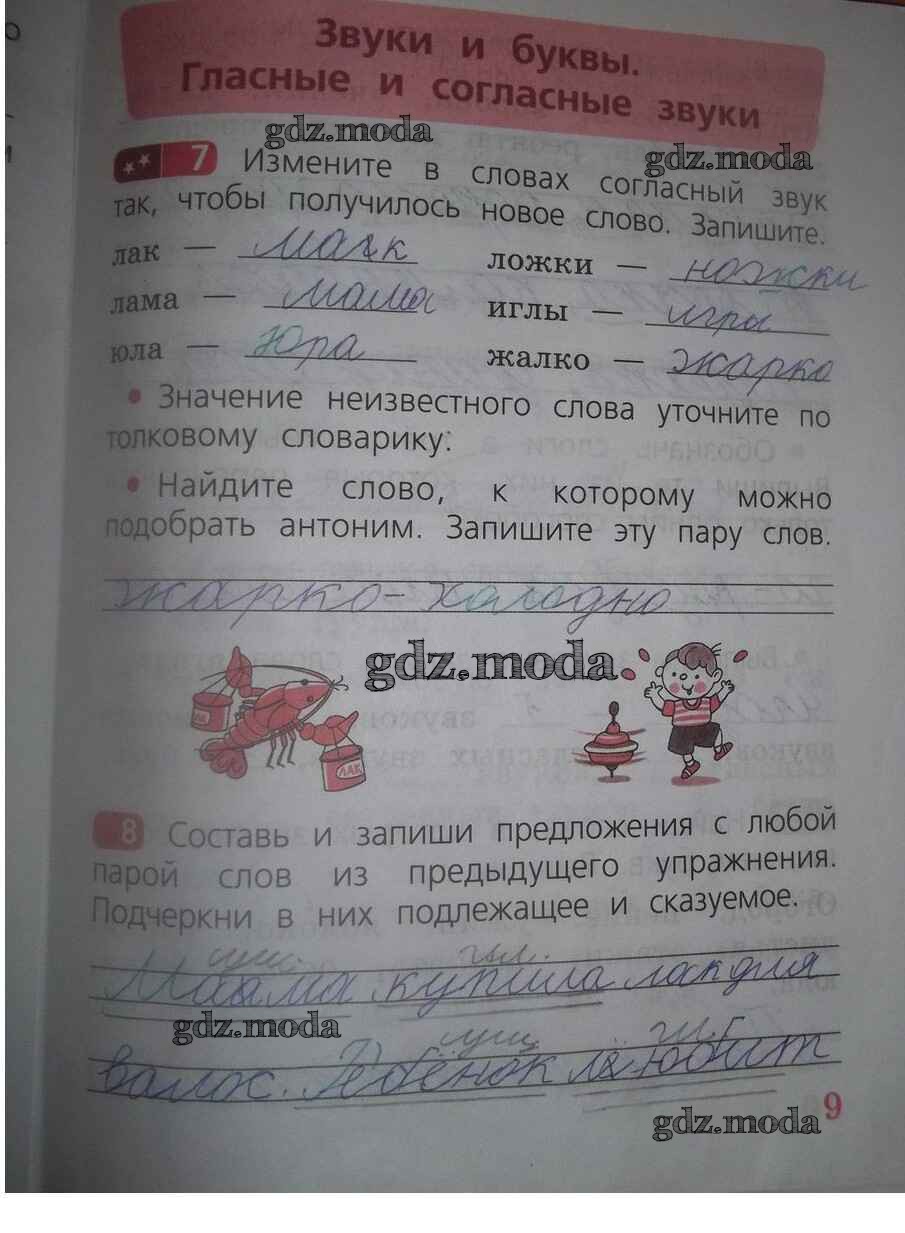 Звуки и буквы.
Гласные и согласные звуки
gdz.moda gdz.moda
7 Измените в словах согласный звук
так, чтобы получилось новое слово. Запишите.
лак — мак ложки — ножки
лама — мама иглы — игры
юла — Юра жалко — жарко
• Значение неизвестного слова уточните по
толковому словарику:
• Найдите слово, к которому можно
подобрать антоним. Запишите эту пару слов.
жарко - холодно
gdz.moda
ЛАК
ЛАК
8 Составь и запиши предложения с любой
парой слов из предыдущего упражнения.
Подчеркни в них подлежащее и сказуемое.
сущ. гл.
Мама купила лак для
gdz.moda
сущ гл.
валос. Ребёнок любит
9
gdz.moda